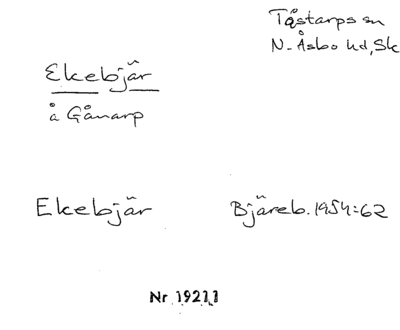 Tåstarps sn
N. Åsbo hd, Sk
Ekebjär
å Gånarp
Ekebjär Bjäreb. 1954:62
Nr 19211